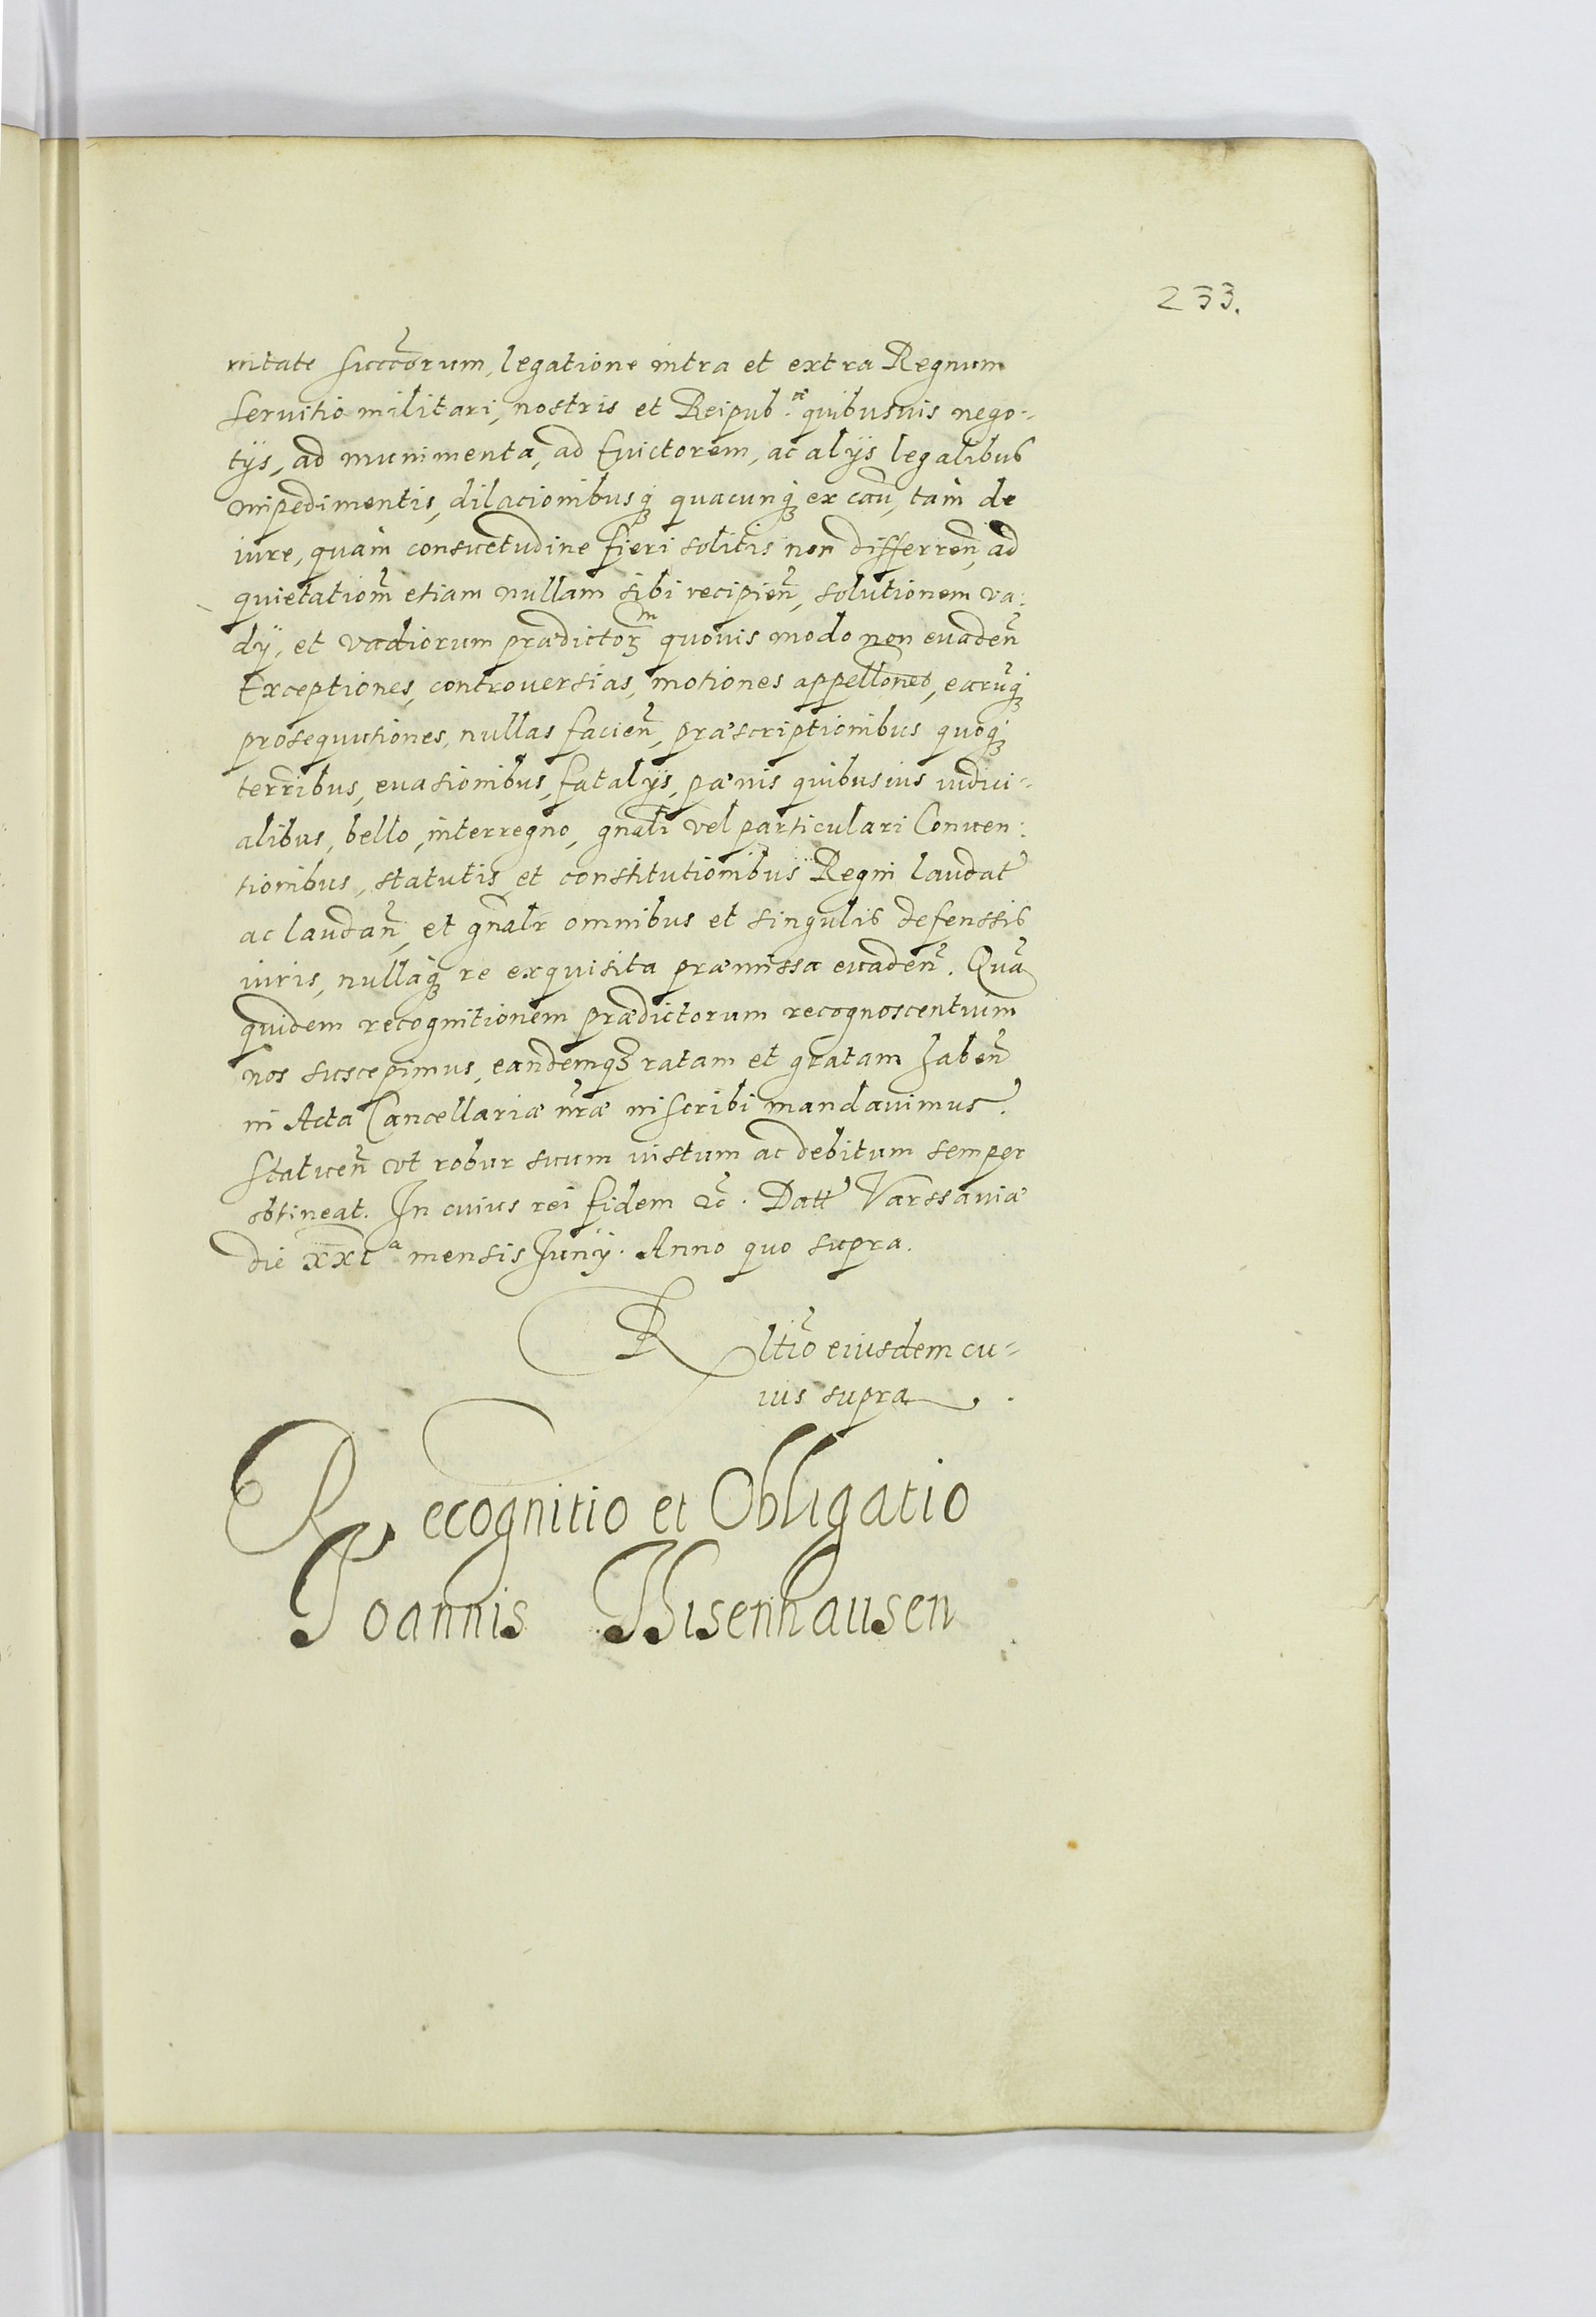 233.
ritate succōrum, legatione intra et extra Regnum
seruitio militari, nostris et Reipub.ae quibusuis nego-
tÿs, ad munimenta, ad Euictorem, ac alÿs legalibus
impedimentis, dilacionibusq₃ quacunq₃ ex cau̅, tam de
iure, quam consuetudine fieri solitis non differren̅, ad
quietationm̅ etiam nullam sibi recipien̅, solutionem va:
dÿ, et vadiorum prædictoꝝm quouis modo non euaden̅
Exceptiones, controuersias, motiones appellones̅, earu̅q₃
prosequutiones, nullas facien̅, præscriptionibus quoq₃
terribus, euasionibus, fatalÿs, pænis quibusius iudici-
alibus, bello, interregno, gn̅ali vel particulari Conuen:
tionibus, statutis et constitutionibus Regni laudat̅
ac laudan̅, et gn̅alr omnibus et singulis defenssis
iuris, nullaq₃ re exquisita præmissa euaden̅. Qua̅
quidem recognitionem prædictorum recognoscentium
nos suscepimus, eandemq₃ ratam et gratam haben̅
in Acta Cancellariæ nr̅æ inscribi mandauimus.
Statuen̅ vt robur suum iustum ac debitum semper
obtineat. In cuius rei fidem &c̅. Datt̅ Varssauiæ
die XXIa mensis Junÿ. Anno quo supra.
R ltio̅ eiusdem cu-
ius supra.
Recognitio et Obligatio
Joannis Tisenhausen